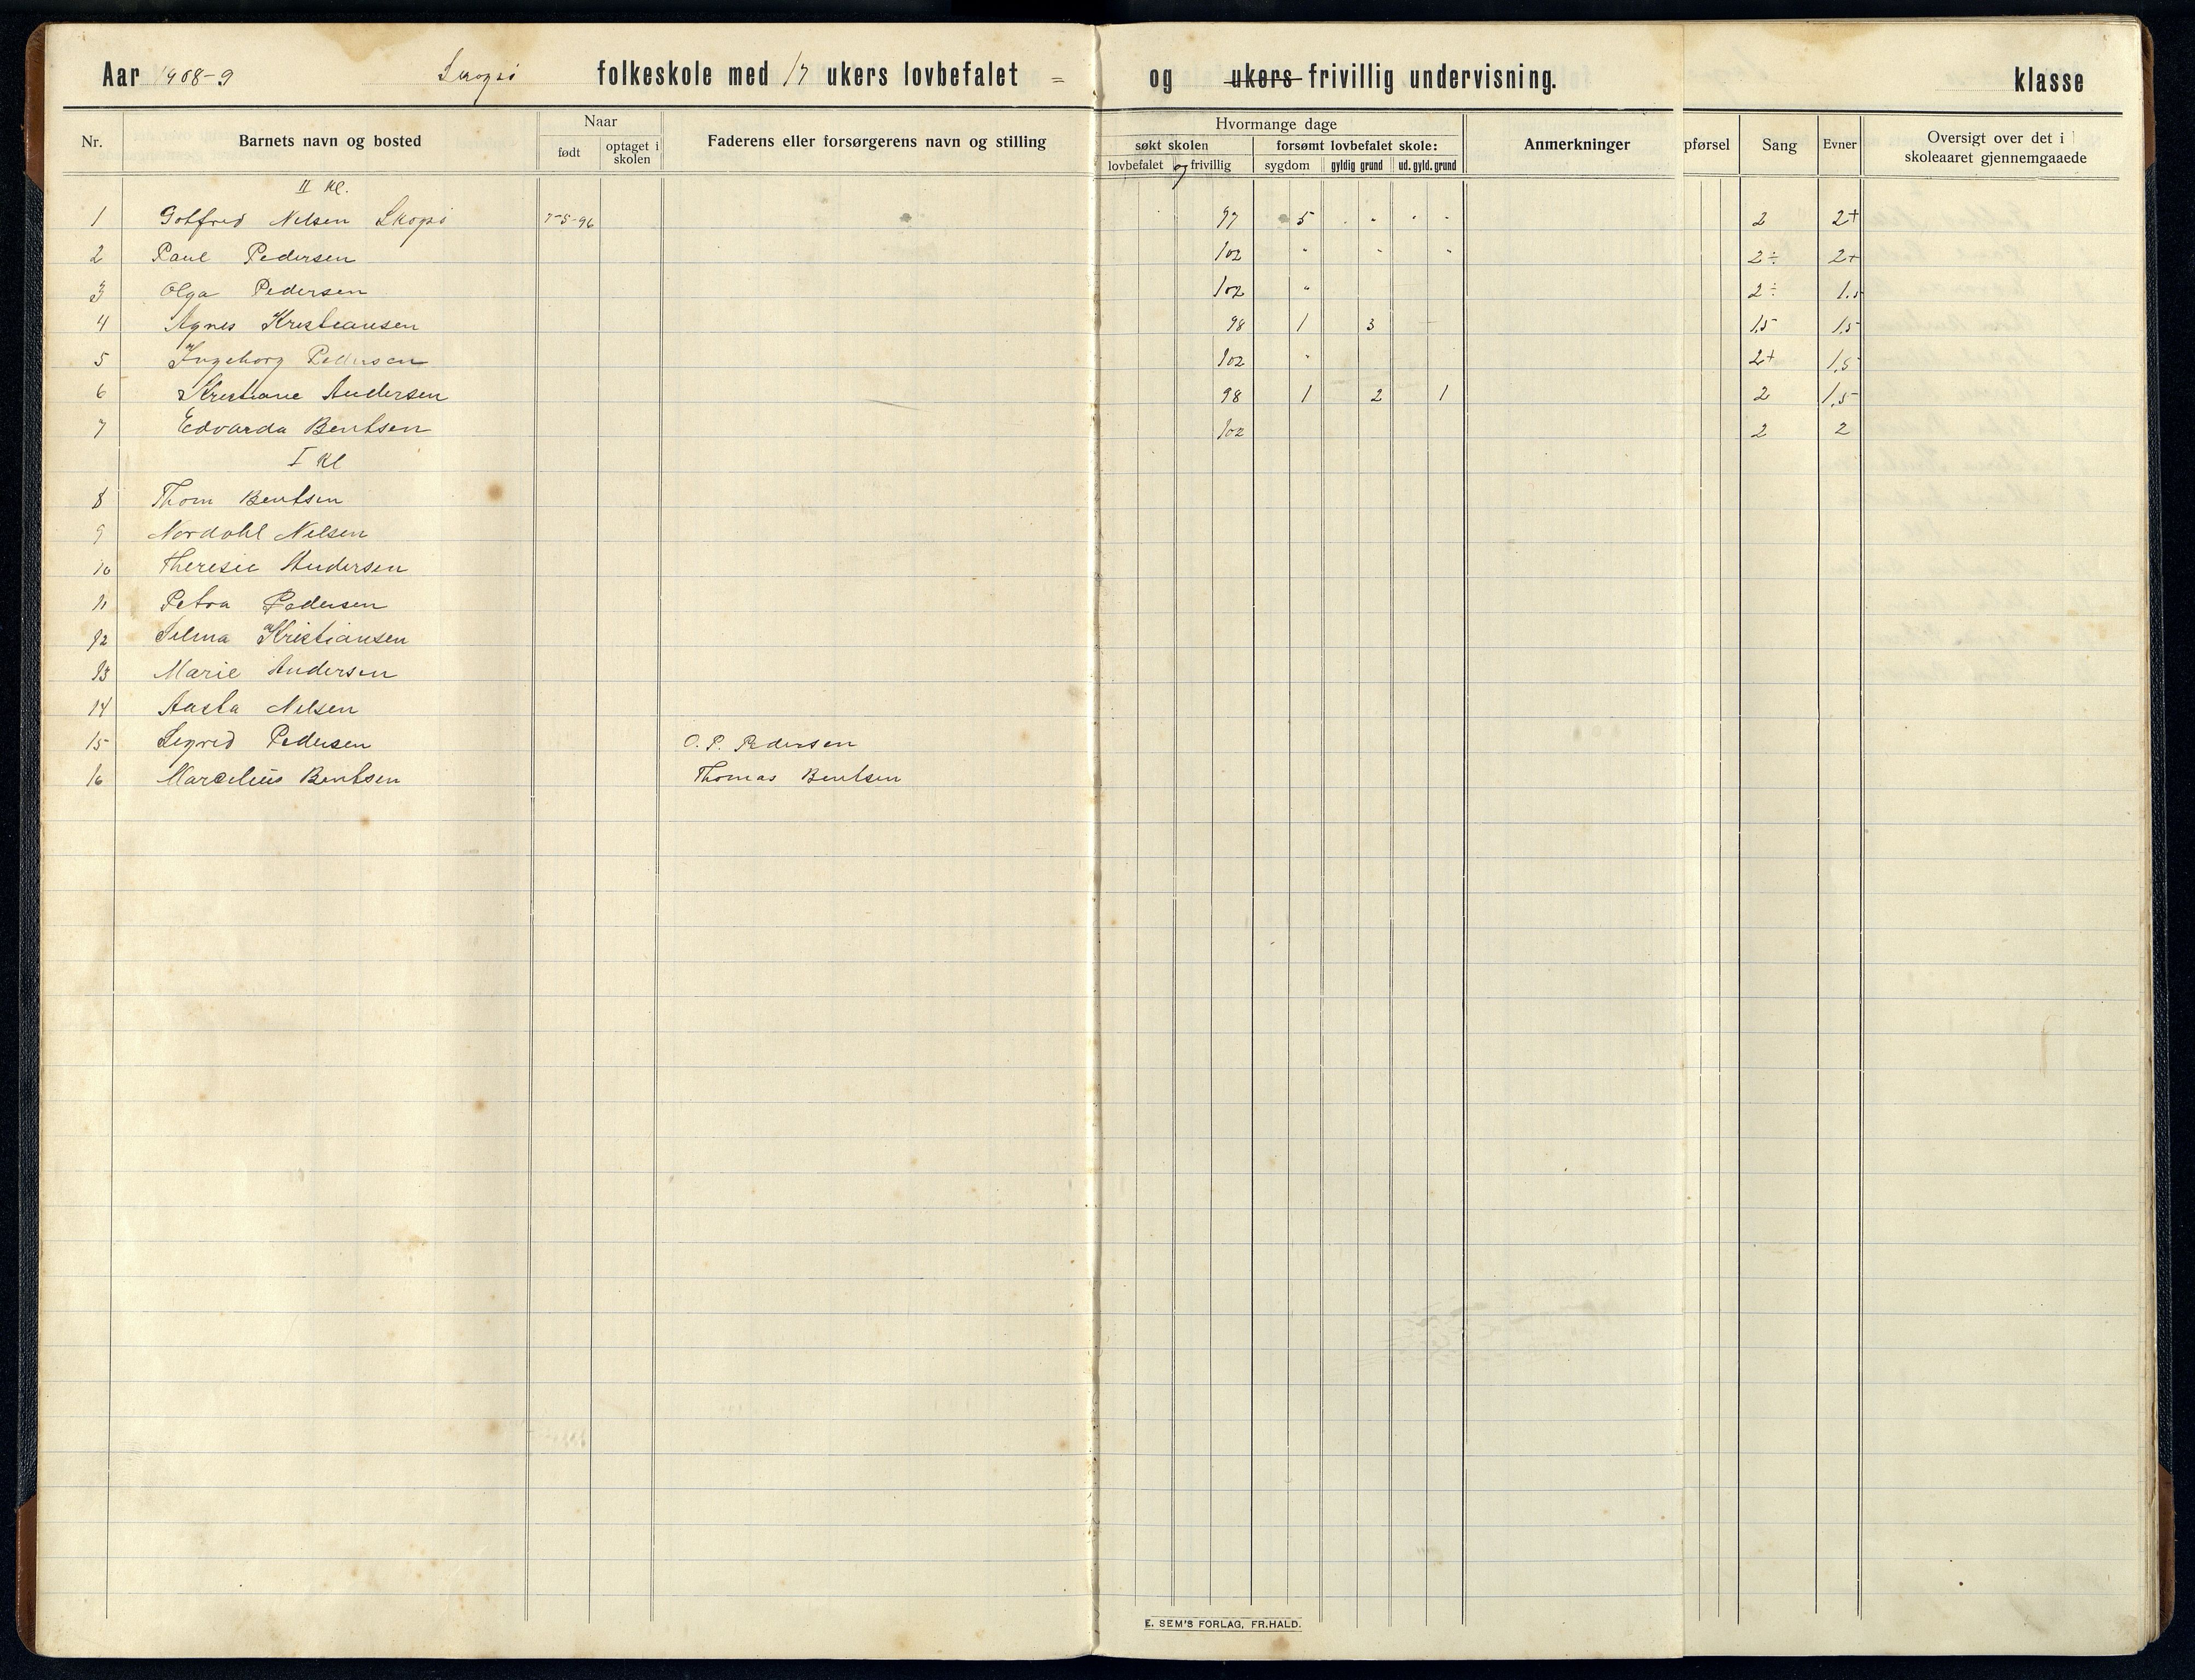 Aar 1908-9 Skogsö folkeskole med 17 ukers lovbefalet = og ukers frivillig undervisning. klasse
Nr. Barnets navn og bosted Naar født optaget i skolen Faderens eller forsørgerens navn og stilling Hvormange dage søkt skolen lovbefalet og frivillig forsømt lovbefalet skole: sygdom gyldig grund ud. gyld. grund Anmerkninger pførsel Sang Evner Oversigt over det i skoleaaret gjennemgaaede
II Kl.
1 Gotfred Nilsen Skogsö 7-5-96 97 5 " " 2 2+
2 Paul Pedersen 102 " " " 2÷ 2+
3 Olga Pedersen 102 " 2÷ 1.5
4 Agnes Kristiansen 98 1 3 1,5 1,5
5 Ingeborg Pedersen 102 " 2+ 1,5
6 Kristiane Andersen 98 1 2 1 2 1,5
7 Edvarda Bentsen 102 2 2
I Kl
8 Thom Bentsen
9 Nordahl Nilsen
10 Theresie Andersen
11 Petra Pedersen
12 Selma Kristiansen
13 Marie Andersen
14 Aasta Nilsen
15 Sigrid Pedersen O. P. Pedersen
16 Marcelius Bentsen Thomas Bentsen
E. SEM'S FORLAG, FR.HALD.